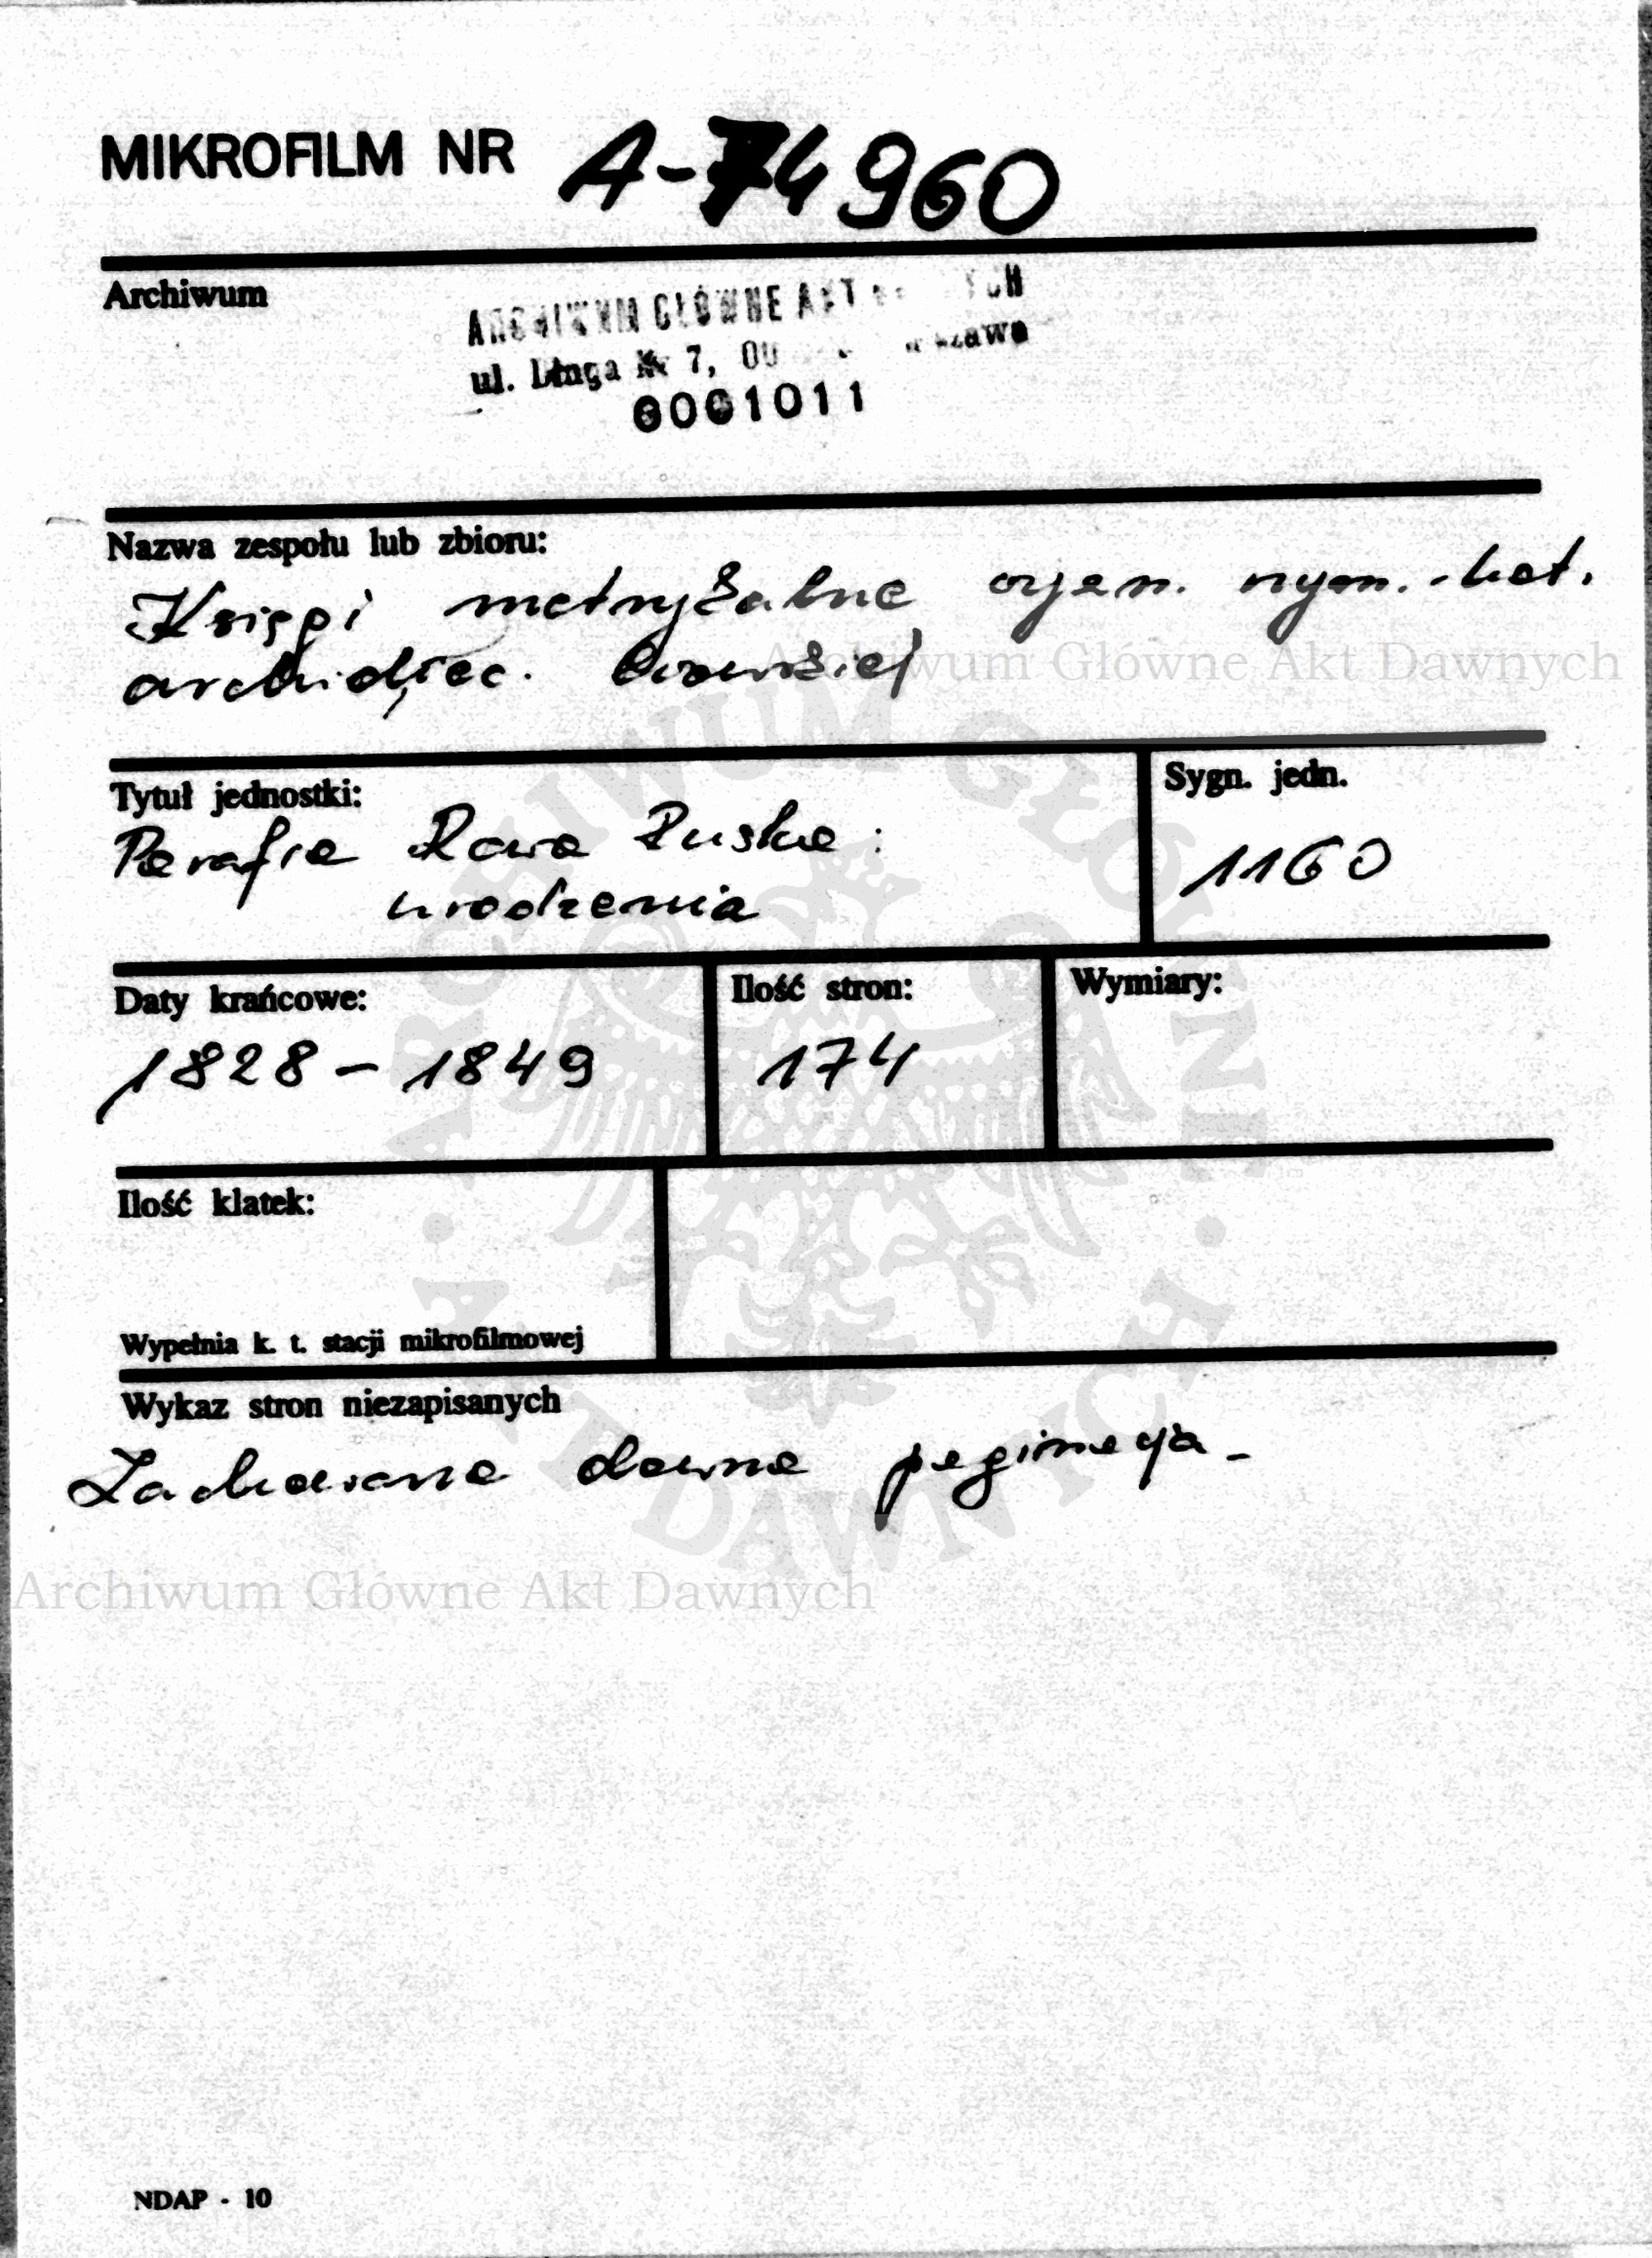 MIKROFILM NR A-74960
Archiwum
ARCHIWUM GŁÓWNE AKT
ul. Długa Nr 7, 00
0001011
Nazwa zespołu lub zbioru:
Księgi metrykalne rzym.-kat.
archidiec. lwowskiej
Archiwum Główne Akt Dawnych
Tytuł jednostki:
Parafia Rawa Ruska:
urodzenia
Sygn. jedn.
1160
Daty krańcowe:
1828 - 1849
Ilość stron:
174
Wymiary:
Ilość klatek:
Wypełnia k. t. stacji mikrofilmowej
Wykaz stron niezapisanych
Zachowana dawna paginacja -
ARCHIWUM GŁÓWNE AKT DAWNYCH
Archiwum Główne Akt Dawnych
NDAP - 10